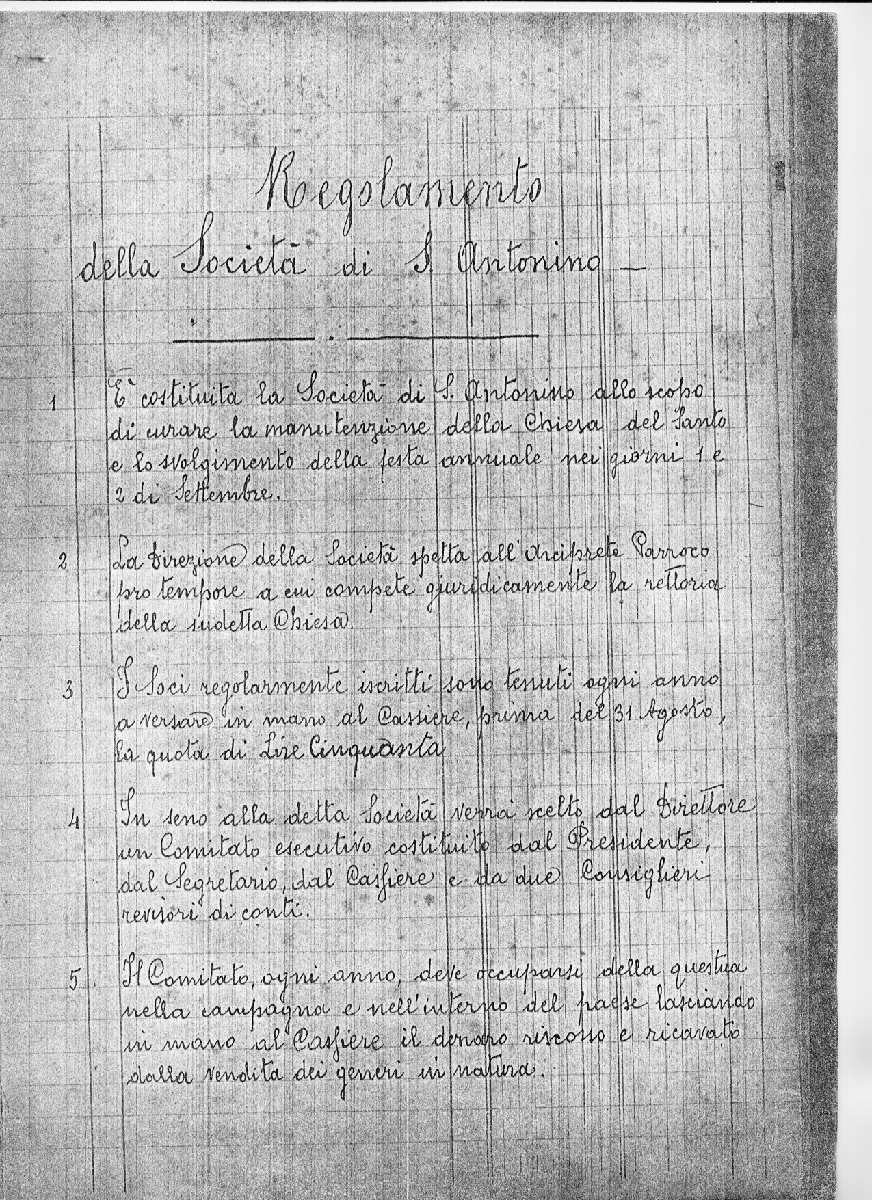 Regolamento
della Società di S Antonino —
1 E' costituita la Società di S. Antonino allo scopo
di curare la manutenzione della Chiesa del Santo
e lo svolgimento della festa annuale nei giorni 1 e
2 di Settembre.
2 La Direzione della Società spetta all'Arciprete Parroco
pro tempore a cui compete giuridicamente la rettoria
della sudetta Chiesa
3 I Soci regolarmente iscritti sono tenuti ogni anno
a versare in mano al Cassiere, prima del 31 Agosto,
la quota di Lire Cinquanta
4 In seno alla detta Società verrà scelto dal Direttore
un Comitato esecutivo costituito dal Presidente,
dal Segretario, dal Cassiere e da due Consiglieri
revisori di conti.
5. Il Comitato, ogni anno, deve occuparsi della questua
nella campagna e nell'interno del paese lasciando
in mano al Cassiere il denaro riscosso e ricavato
dalla vendita dei generi in natura.